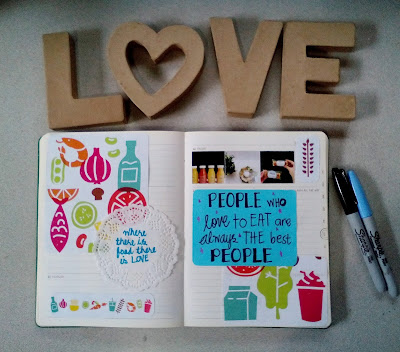 LOVE
where
there is
food there
is LOVE
PEOPLE who
love to EAT are
always THE best
PEOPLE
Sharpie